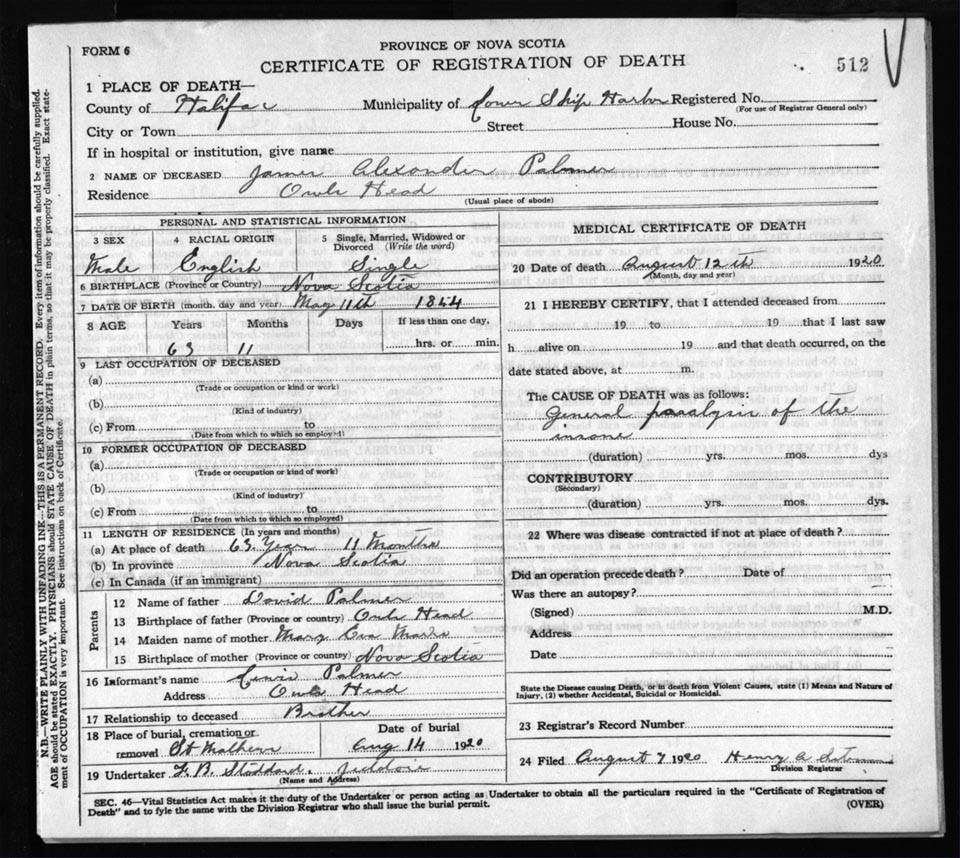 FORM 6
PROVINCE OF NOVA SCOTIA
CERTIFICATE OF REGISTRATION OF DEATH
512
1 PLACE OF DEATH—
County of Halifax Municipality of Lower Ship Harbor Registered No.
(For use of Registrar General only)
City or Town Street House No.
If in hospital or institution, give name
2 NAME OF DECEASED James Alexander Palmer
Residence Owls Head
(Usual place of abode)
PERSONAL AND STATISTICAL INFORMATION
3 SEX 4 RACIAL ORIGIN 5 Single, Married, Widowed or Divorced (Write the word)
Male English Single
6 BIRTHPLACE (Province or Country) Nova Scotia
7 DATE OF BIRTH (month, day and year) May 11th
8 AGE Years Months Days If less than one day,
63 11 hrs. or min.
9 LAST OCCUPATION OF DECEASED
(a)
(Trade or occupation or kind of work)
(b)
(Kind of industry)
(c) From to
(Date from which to which so employed)
10 FORMER OCCUPATION OF DECEASED
(a)
(Trade or occupation or kind of work)
(b)
(Kind of industry)
(c) From to
(Date from which to which so employed)
11 LENGTH OF RESIDENCE (In years and months)
(a) At place of death 63 Year 11 Months
(b) In province Nova Scotia
(c) In Canada (if an immigrant)
Parents
12 Name of father David Palmer
13 Birthplace of father (Province or country) Owls Head
14 Maiden name of mother Mary Eva
15 Birthplace of mother (Province or country) Nova Scotia
16 Informant's name Lewis Palmer
Address Owls Head
17 Relationship to deceased Brother
18 Place of burial, cremation or removal Date of burial
St Aug 14 1920
19 Undertaker Stoddard Jeddore
(Name and Address)
MEDICAL CERTIFICATE OF DEATH
20 Date of death August 12th 1920
(Month, day and year)
21 I HEREBY CERTIFY, that I attended deceased from
19 to 19 that I last saw
h alive on 19 and that death occurred, on the
date stated above, at m.
The CAUSE OF DEATH was as follows:
General paralysis of the
insane
(duration) yrs. mos. dys
CONTRIBUTORY
(Secondary)
(duration) yrs. mos. dys.
22 Where was disease contracted if not at place of death?
Did an operation precede death? Date of
Was there an autopsy?
(Signed) M.D.
Address
Date
State the Disease causing Death, or in death from Violent Causes, state (1) Means and Nature of
Injury, (2) whether Accidental, Suicidal or Homicidal.
23 Registrar's Record Number
24 Filed August 7 1920 Henry
Division Registrar
SEC. 46—Vital Statistics Act makes it the duty of the Undertaker or person acting as Undertaker to obtain all the particulars required in the "Certificate of Registration of
Death" and to fyle the same with the Division Registrar who shall issue the burial permit. (OVER)
N.B.—WRITE PLAINLY WITH UNFADING INK—THIS IS A PERMANENT RECORD. Every item of information should be carefully supplied.
AGE should be stated EXACTLY. PHYSICIANS should STATE CAUSE OF DEATH in plain terms, so that it may be properly classified. Exact state-
ment of OCCUPATION is very important. See instructions on back of Certificate.